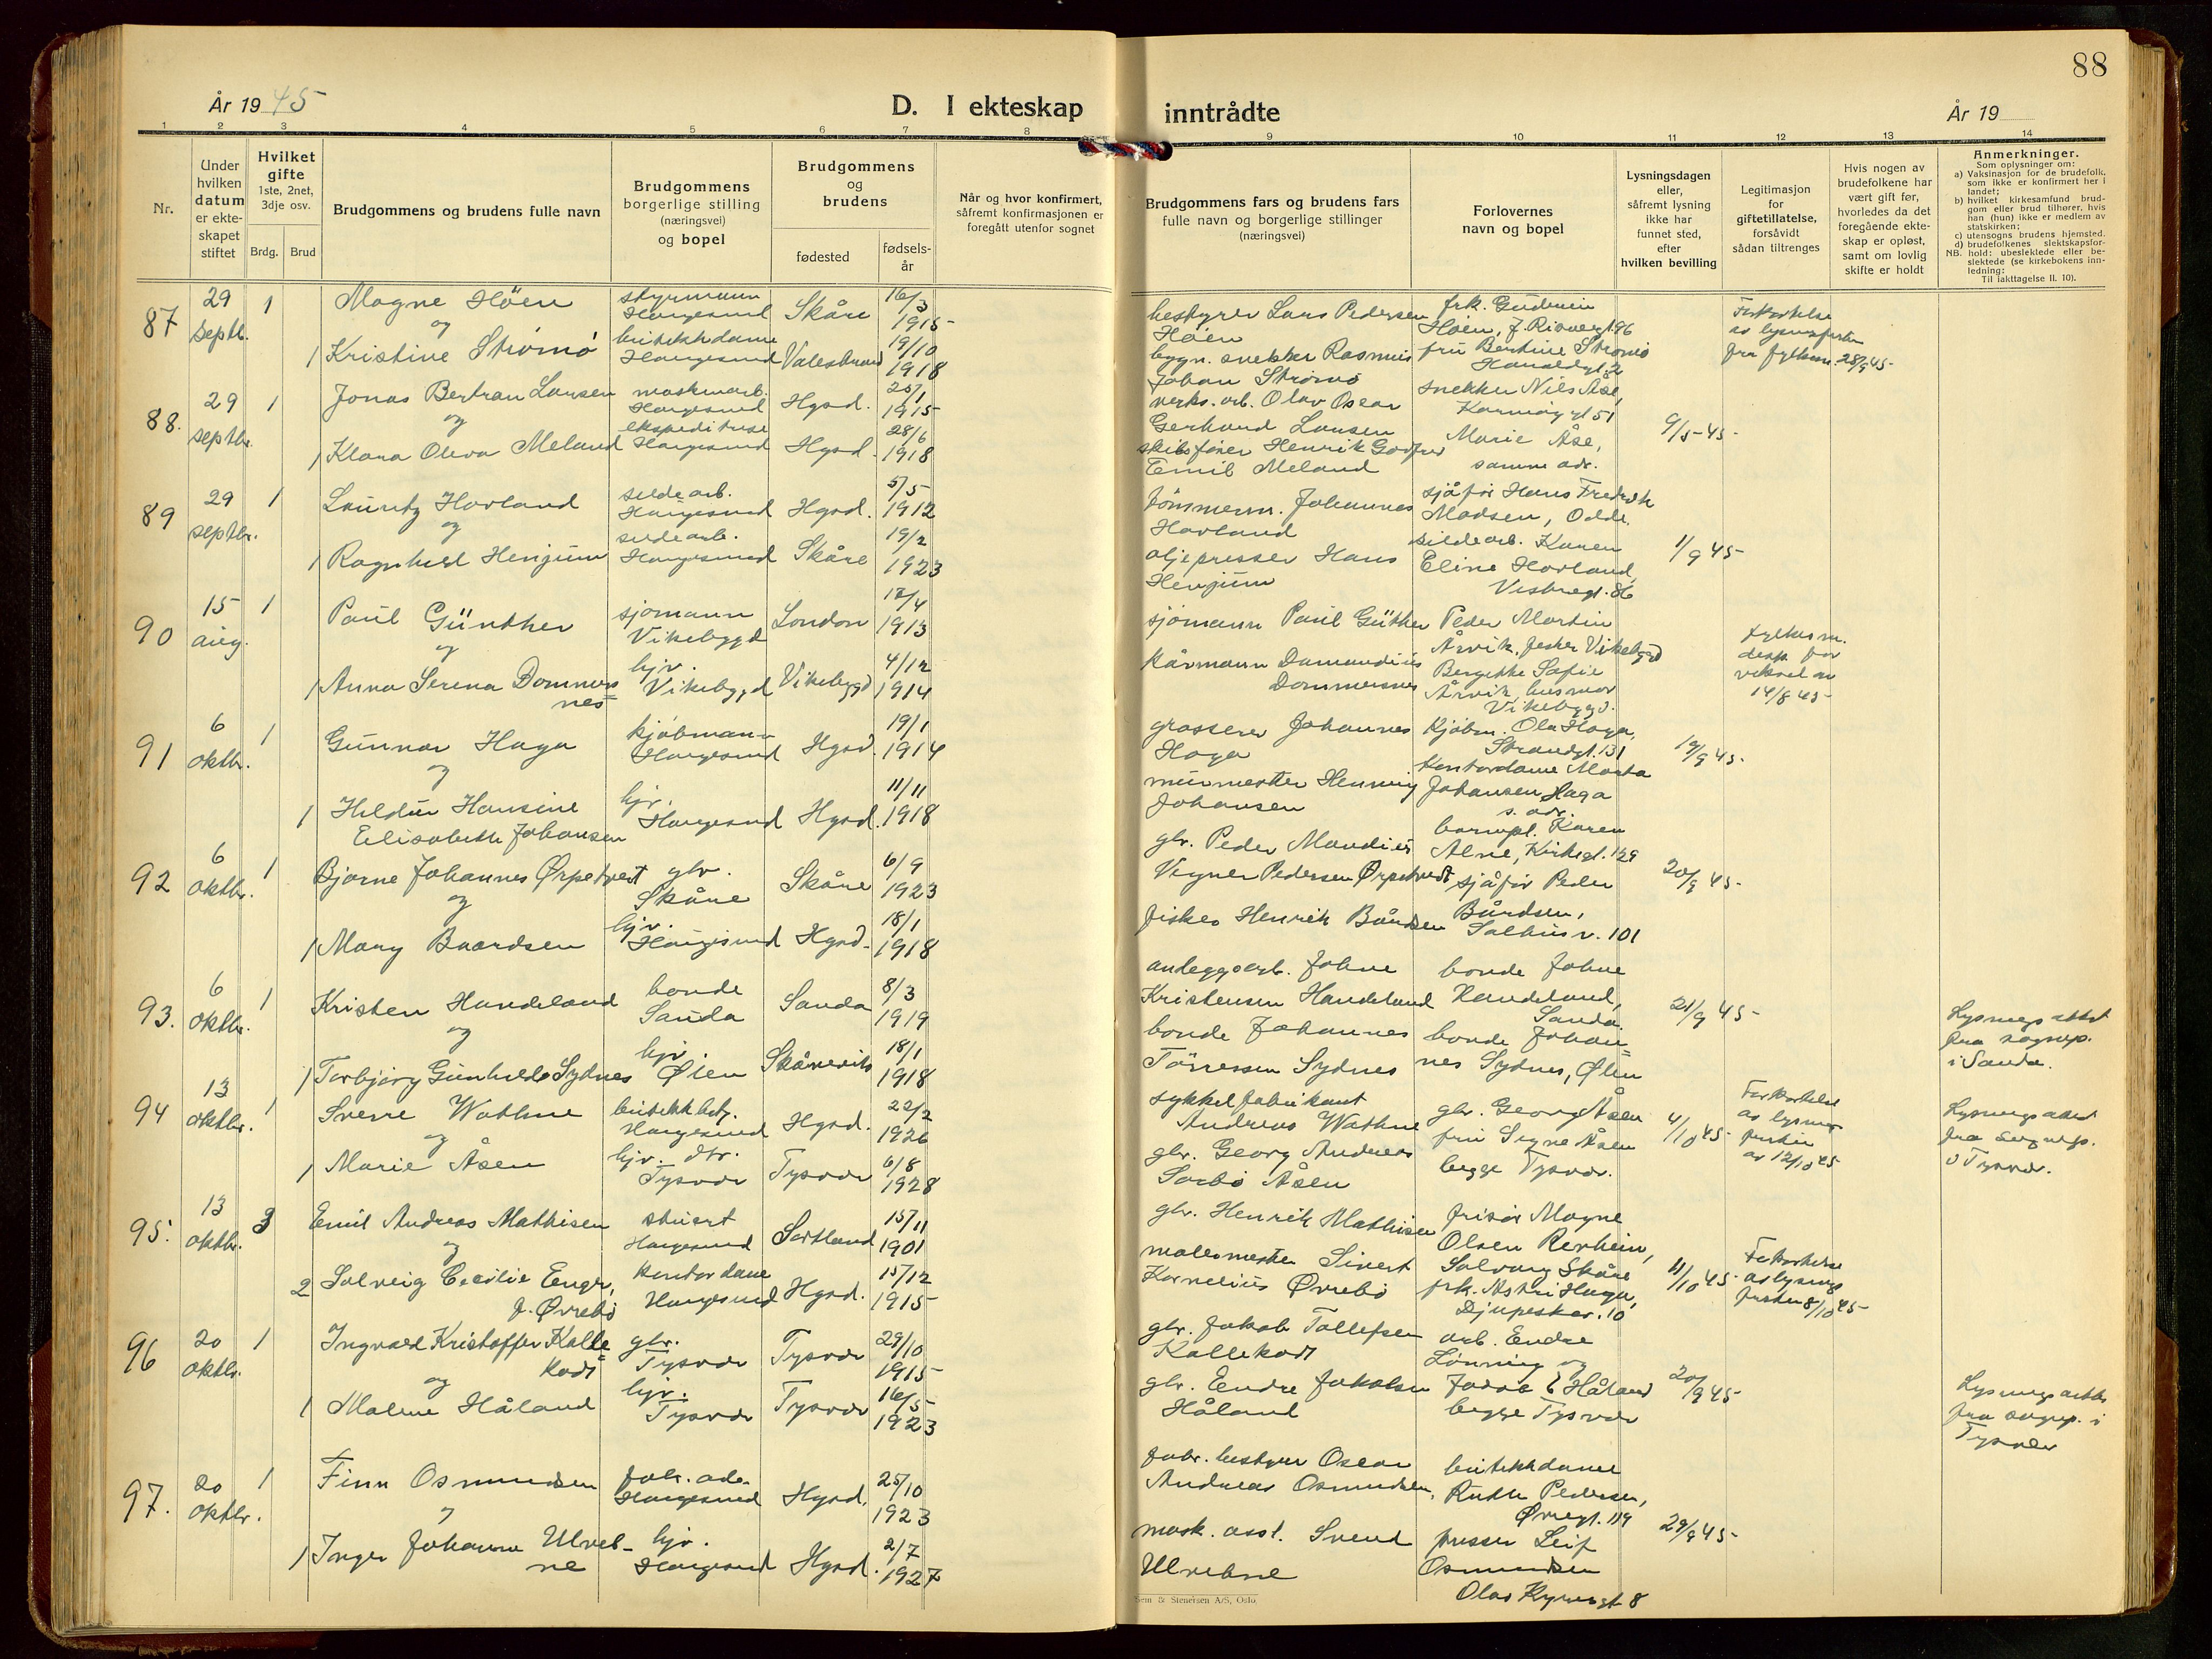 88
År 19 45
D. I ekteskap inntrådte
År 19
1 2 3 4 5 6 7 8 9 10 11 12 13 14
Nr.
Under hvilken datum er ekteskapet stiftet
Hvilket gifte
1ste, 2net, 3dje osv.
Brdg. Brud
Brudgommens og brudens fulle navn
Brudgommens borgerlige stilling (næringsvei) og bopel
Brudgommens og brudens
fødested
fødsels-år
Når og hvor konfirmert, såfremt konfirmasjonen er foregått utenfor sognet
Brudgommens fars og brudens fars fulle navn og borgerlige stillinger (næringsvei)
Forlovernes navn og bopel
Lysningsdagen eller, såfremt lysning ikke har funnet sted, efter hvilken bevilling
Legitimasjon for giftetillatelse, forsåvidt sådan tiltrenges
Hvis nogen av brudefolkene har vært gift før, hvorledes da det foregående ekteskap er opløst, samt om lovlig skifte er holdt
Anmerkninger.
Som oplysninger om:
a) Vaksinasjon for de brudefolk, som ikke er konfirmert her i landet;
b) hvilket kirkesamfund brudgom eller brud tilhører, hvis han (hun) ikke er medlem av statskirken;
c) utensogns brudens hjemsted.
d) brudefolkenes slektskapsforhold: ubeslektede eller beslektede (se kirkebokens innledning:
NB.
Til iakttagelse II. 10).
87 29 septbr. 1 Magne Höen styrmann Haugesund Skåre 16/3 1915
og
1 Kristine Strömö butikkdame Haugesund Valestrand 19/10 1918
bestyrer Lars Pedersen Höen
bygn. snekker Rasmus Johan Strömö
frk. Gudrun Höen,
fru Bertine Strömö
Haraldsgt. 2
Forkortelse av lysningsfristen fra fylkesm. 28/9 45
88. 29 septbr. 1 Jonas Bertran Larsen maskinarb. Haugesund Hgsd. 1915
og
1 Klara Oleva Meland ekspeditrise Haugesund Hgsd. 28/6 1918
verks. arb. Olav Oscar Gerhard Larsen
skibsfører Henrik Godfred Emil Meland
snekker Nils Åse,
Karmöygt 51
Marie Åse,
samme adr.
9/5-45-
89 29 septbr. 1 Lauritz Hovland sildearb. Haugesund Hgsd. 5/5 1912
og
1 Ragnhild Henjum sildearb. Haugesund Skåre 19/2 1923
tömmerm. Johannes Hovland
oljepresser Hans Henjum
sjåför Hans Fredrik Madsen, Odda.
sildearb. Karen Eline Hovland,
1/9 45-
90 15 aug. 1 Paul Günther sjömann Vikebygd London 1913
og
1 Anna Serena Dommersnes hjv. Vikebygd Vikebygd 4/12 1914
sjömann Paul Güther
Dommersnes
Peder Martin Årvik, fisker Vikebygd
Bergitte Sofie Årvik, husmor
Vikebygd.
fylkesm.
14/8 45-
91 6 oktbr. 1 Gunnar Haga kjöbmann Haugesund Hgsd. 19/1 1914
og
1 Hildur Hansine Elisabeth Johansen hjv. Haugesund Hgsd. 11/11 1918
grosserer Johannes Haga
murmester Henning Johansen
Kjöbm. Ola Haga,
Strandgt. 131
Kontordame Marta Johansen Haga
s. adr.
19/9 45-
92 6 oktbr. 1 Bjarne Johannes Ørpetveit gbr. Skåre Skåre 6/9 1923
og
1 Mary Baardsen hjv. Haugesund Hgsd. 18/1 1918
gbr. Peder Mandius Pedersen Ørpetveit
fisker Henrik Bårdsen
Karen Alne, Kirkegt. 129
sjåför Peder Bårdsen,
Salhusv. 101
20/9 45-
93. 6 oktbr. 1 Kristen Handeland bonde Sauda Sauda 8/3 1919
og
1 Torbjörg Gunhilde Sydnes hjv. Ølen Skånevik 18/1 1918
anleggsarb. Johne Kristensen Handeland
bonde Johannes Törresen Sydnes
bonde Johne Handeland,
Sauda.
bonde Johannes Sydnes, Ølen
21/9 45-
Lysningsattest fra sognep. i Sauda.
94 13 oktbr. 1 Sverre Wathne butikkbetj. Haugesund Hgsd. 22/2 1926
og
1 Marie Åsen hjv. dtr. Tysvær Tysvær 6/8 1928
sykkelfabrikant Andreas Wathne
gbr. Georg Andreas Sörbö Åsen
gbr. Georg Åsen
fru Signe Åsen
begge Tysvær.
4/10 45-
Forkortelse av lysningsfristen av 12/10 45
Lysningsattest fra sognep. i Tysvær.
95. 13 oktbr. 3 Emil Andreas Mathisen stuert Haugesund Sortland 15/11 1901
og
2 Solveig Cecilie Enger, f. Øvrebö kontordame Haugesund Hgsd. 15/12 1915
gbr. Henrik Mathisen
malermester Sivert Kornelius Øvrebö
frisör Magne Olsen Rerhein,
Solvang Skåre
frk. Astri Haga,
Djupeskar. 10
11/10 45-
Forkortelse av lysningsfristen 8/10 45-
96 20 oktbr. 1 Ingvald Kristoffer Kallekodt gbr. Tysvær Tysvær 29/10 1915
og
1 Malene Håland hjv. Tysvær Tysvær 16/5 1923
gbr. Jakob Tollefsen Kallekodt
gbr. Endre Jakobsen Håland
arb. Endre Lönning og
Håland
begge Tysvær
20/9 45-
Lysningsattest fra sognep. i Tysvær
97. 20 oktbr. 1 Finn Osmundsen fabr. arb. Haugesund Hgsd. 25/10 1923
og
1 Inger Johanne Ulvebne hjv. Haugesund Hgsd. 2/7 1927
fabr. bestyrer Oscar Andreas Osmundsen,
mask. asst. Svend Ulvebne
butikkdame Ruth Pedersen,
Øvregt. 119
presser Leif Osmundsen
Olav Kyrresgt 8
29/9 45-
Sem & Stenersen A/S, Oslo.